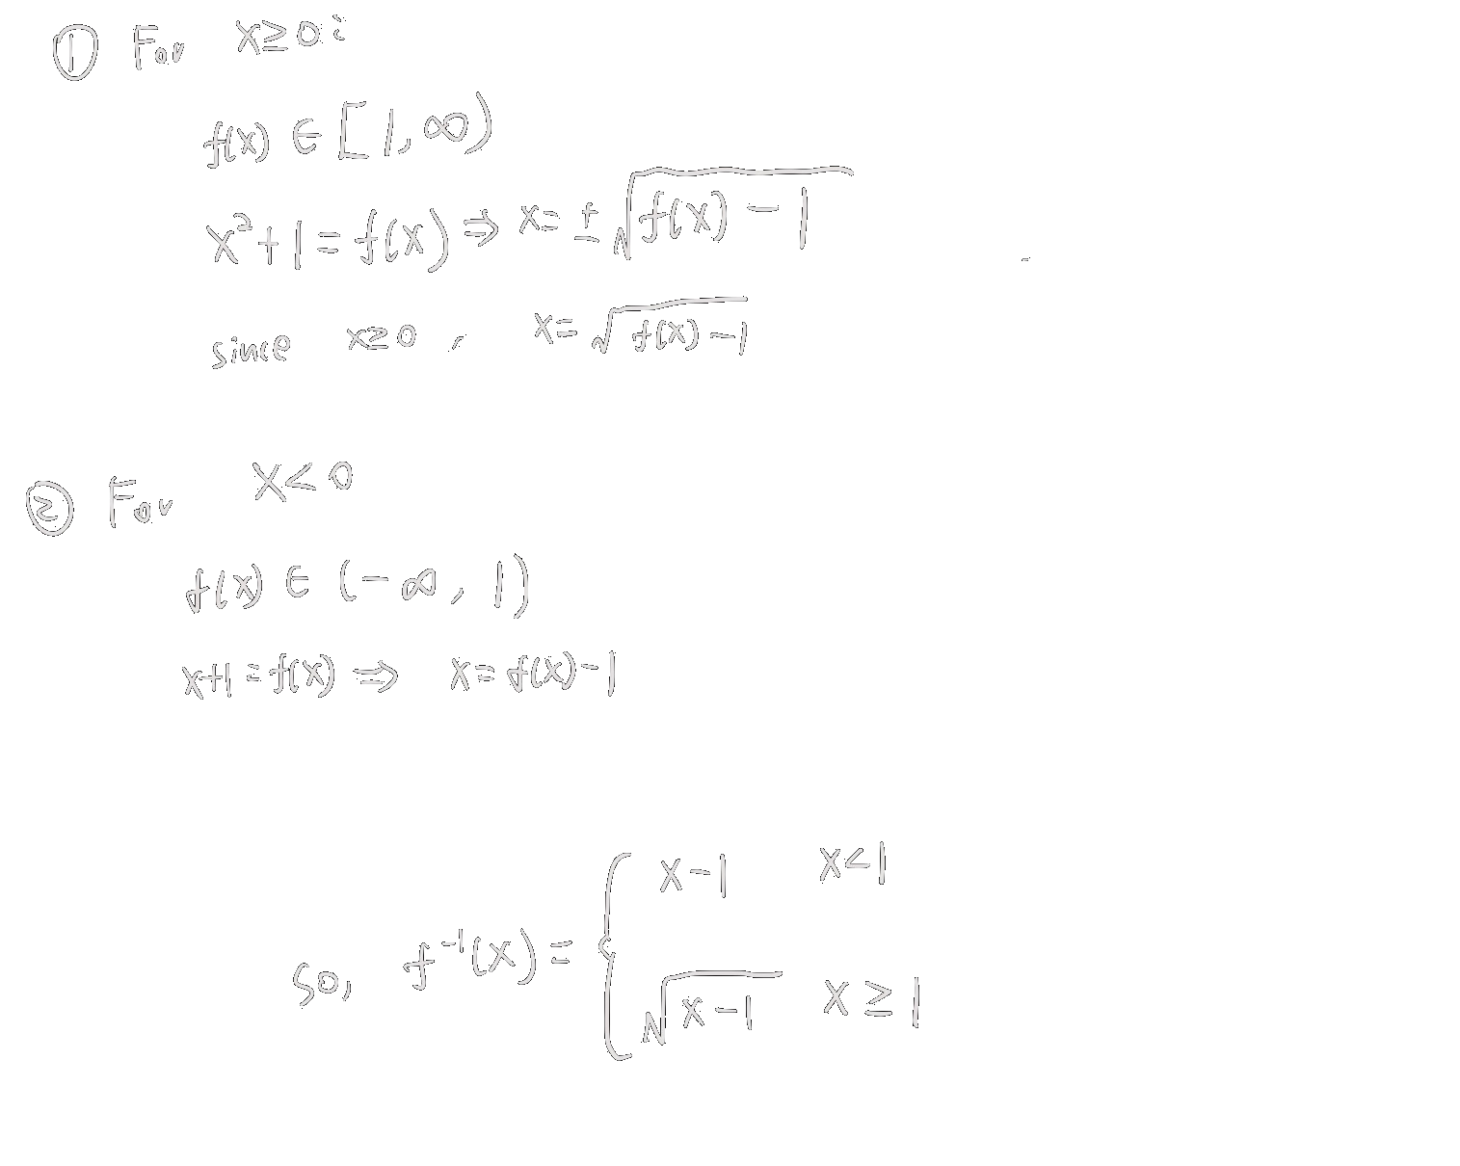 ① For x≥0:
f(x) ∈ [1,∞)
x²+1 = f(x) ⇒ x= ±√(f(x)-1)
since x≥0, x= √(f(x)-1)
② For x<0
f(x) ∈ (-∞, 1)
x+1 = f(x) ⇒ x= f(x)-1
so, f⁻¹(x) = { x-1 x<1
√(x-1) x≥1